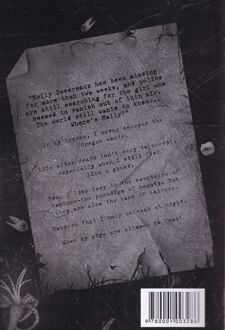 "Molly Devereaux has been missing
for more than two weeks, and police
are still searching for the girl who
seemed to vanish out of thin air.
The world still wants to know...
Where's Molly?"
In my dreams, I never escaped the
Oregon woods.
Life after death isn't easy to accept,
especially when I still feel
like a ghost.
Now, I live deep in the mountains of
Montana—the paradigm of beauty. But
they are also the home of horrors.
Horrors that I only unleash at night.
When my pigs are allowed to feast
9780001003286